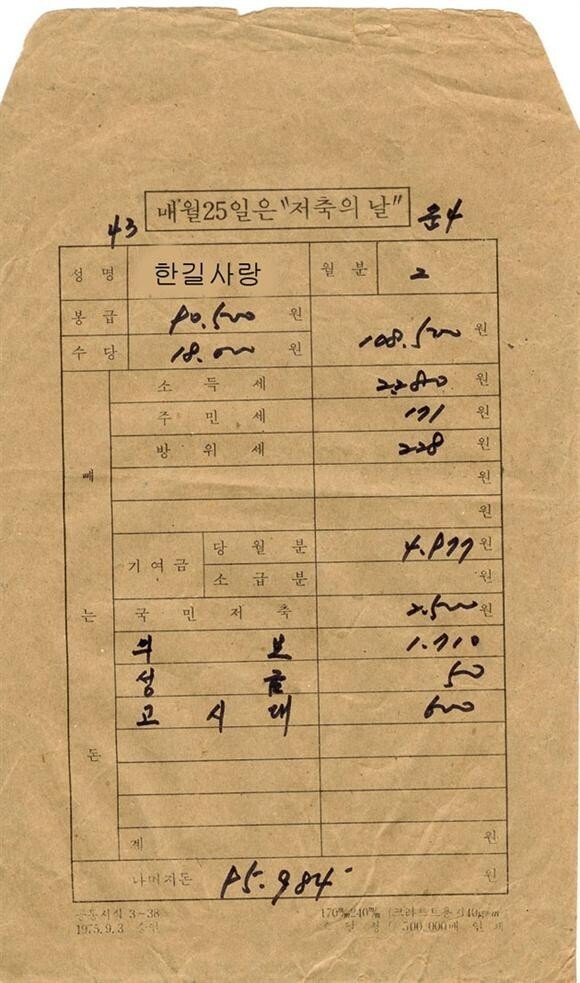 매월25일은 "저축의 날"
43 4
성명 한길사랑 월분 2
봉급 90.500 원 108.500 원
수당 18.000 원
소득세 2.280 원
주민세 171 원
방위세 228 원
빼 원
원
기여금 당월분 4.977 원
소급분 원
는 국민저축 2.500 원
의보 1.710
성금 50
고시대 600
돈
계 원
나머지돈 95.984 원
공통서식 3-38 170㎜ 240㎜ (크라프트용지40g/㎡
1975.9.3 승인 조달청 (500,000매 인